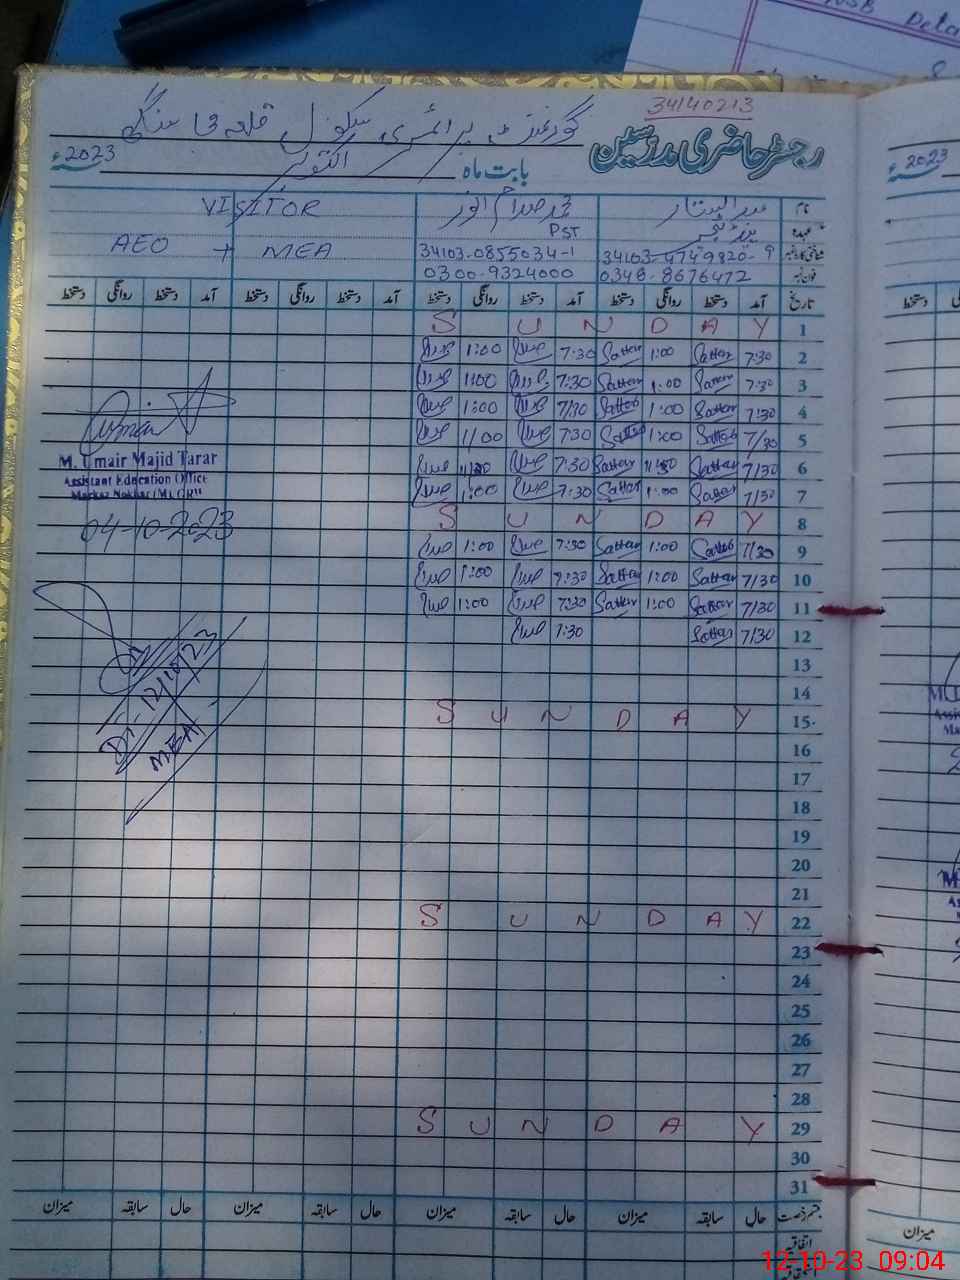 34140213
رجسٹر حاضری مدرسین
گورنمنٹ پرائمری سکول قلعہ نجا سنگھ
بابت ماہ اکتوبر 2023ء
نام عبدالستار محمد صدام انور VISITOR
عہدہ ہیڈ ٹیچر PST AEO + MEA
شناختی کارڈ نمبر 34103-4749820-9 34103-0855034-1
فون نمبر 0348-8676472 0300-9324000
تاریخ آمد دستخط روانگی دستخط آمد دستخط روانگی دستخط آمد دستخط روانگی دستخط آمد دستخط روانگی دستخط
1 S U N D A Y
2 7:30 Sattar 1:00 Sattar 7:30 صدام 1:00 صدام
3 7:30 Sattar 1:00 Sattar 7:30 صدام 1:00 صدام
4 7/30 Sattar 1:00 Sattar 7/30 صدام 1:00 صدام
5 7/30 Sattar 1:00 Sattar 7:30 صدام 1/00 صدام
6 7/30 Sattar 11/30 Sattar 7:30 صدام 11/30 صدام
7 7/30 Sattar 1:00 Sattar 7:30 صدام 1:00 صدام
8 S U N D A Y
9 7/30 Sattar 1:00 Sattar 7:30 صدام 1:00 صدام
10 7/30 Sattar 1:00 Sattar 7:30 صدام 1:00 صدام
11 7/30 Sattar 1:00 Sattar 7:30 صدام 1:00 صدام
12 7/30 Sattar 7:30 صدام
13
14
15 S U N D A Y
16
17
18
19
20
21
22 S U N D A Y
23
24
25
26
27
28
29 S U N D A Y
30
31
M. Umair Majid Tarar
Assistant Education Office
Markaz Nokhar (M)
04-10-2023
Dt: 12/10/23
MEA
حال سابقہ میزان حال سابقہ میزان حال سابقہ میزان حال سابقہ میزان
اتفاقیہ
2023ء
دستخط
میزان
12-10-23 09:04